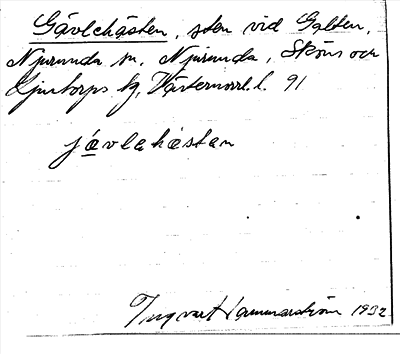 Gävlehästen, sten vid Galten,
Njurunda sn, Njurunda, Sköns och
Ljustorps tg, Västernorrl. l. 91
jävlehästen
Ingvar Hammarström 1932